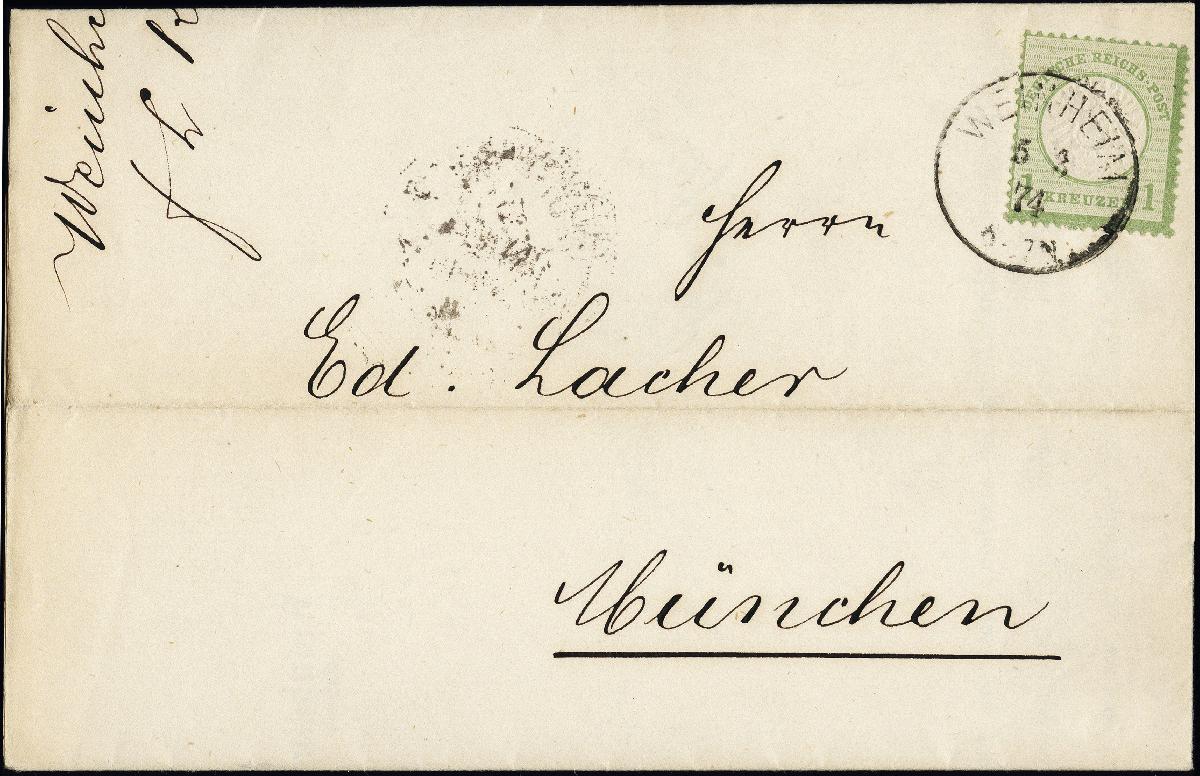 DEUTSCHE REICHS-POST
1 KREUZER 1
WEINHEIM
5 3
74
Herrn
Ed. Lacher
München